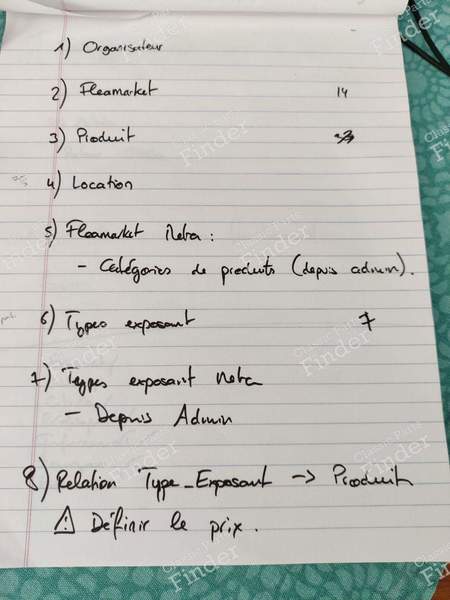 1) Organisateur
2) Fleamarket 14
3) Produit
4) Location
5) Fleamarket Meta :
- Catégories de produits (depuis admin).
6) Types exposant 7
7) Types exposant Meta
- Depuis Admin
8) Relation Type_Exposant -> Produit
⚠ Définir le prix.
Classic Parts Finder